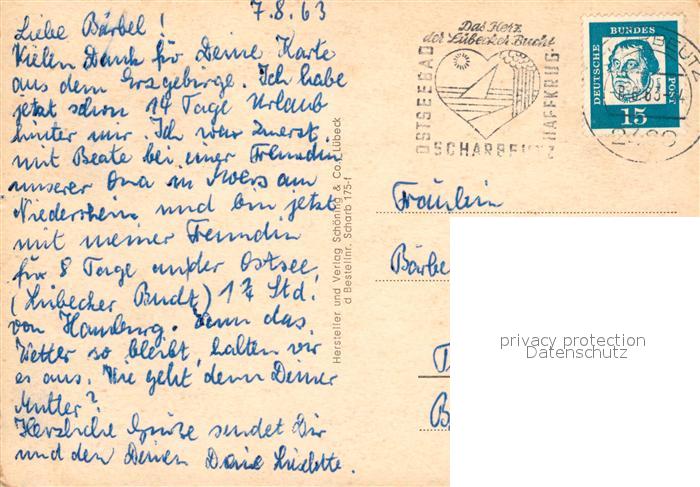 7.8.63
Liebe Bärbel!
Vielen Dank für Deine Karte
aus dem Erzgebirge. Ich habe
jetzt schon 14 Tage Urlaub
hinter mir. Ich war zuerst
mit Beate bei einer Freundin
unserer Oma in Moers am
Niederrhein und bin jetzt
mit meiner Freundin
für 8 Tage an der Ostsee
(Lübecker Bucht) 1 Std.
von Hamburg. Wenn das
Wetter so bleibt, halten wir
es aus. Wie geht denn Deiner
Mutter?
Herzliche Grüße sendet Dir
und den Deinen Deine Liselotte.
Hersteller und Verlag Schöning & Co., Lübeck
Bestellnr. Scharb 175-f
Das Herz
der Lübecker Bucht
OSTSEEBAD
SCHARBEUTZ
HAFFKRUG
DEUTSCHE
BUNDES
POST
15
Fräulein
Bärbe
privacy protection
Datenschutz